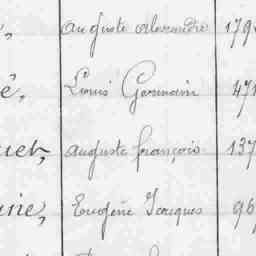 auguste alexandre 179
ê, Louis Germain 471
uet, auguste françois 137
rie, Eugène Jacques 96